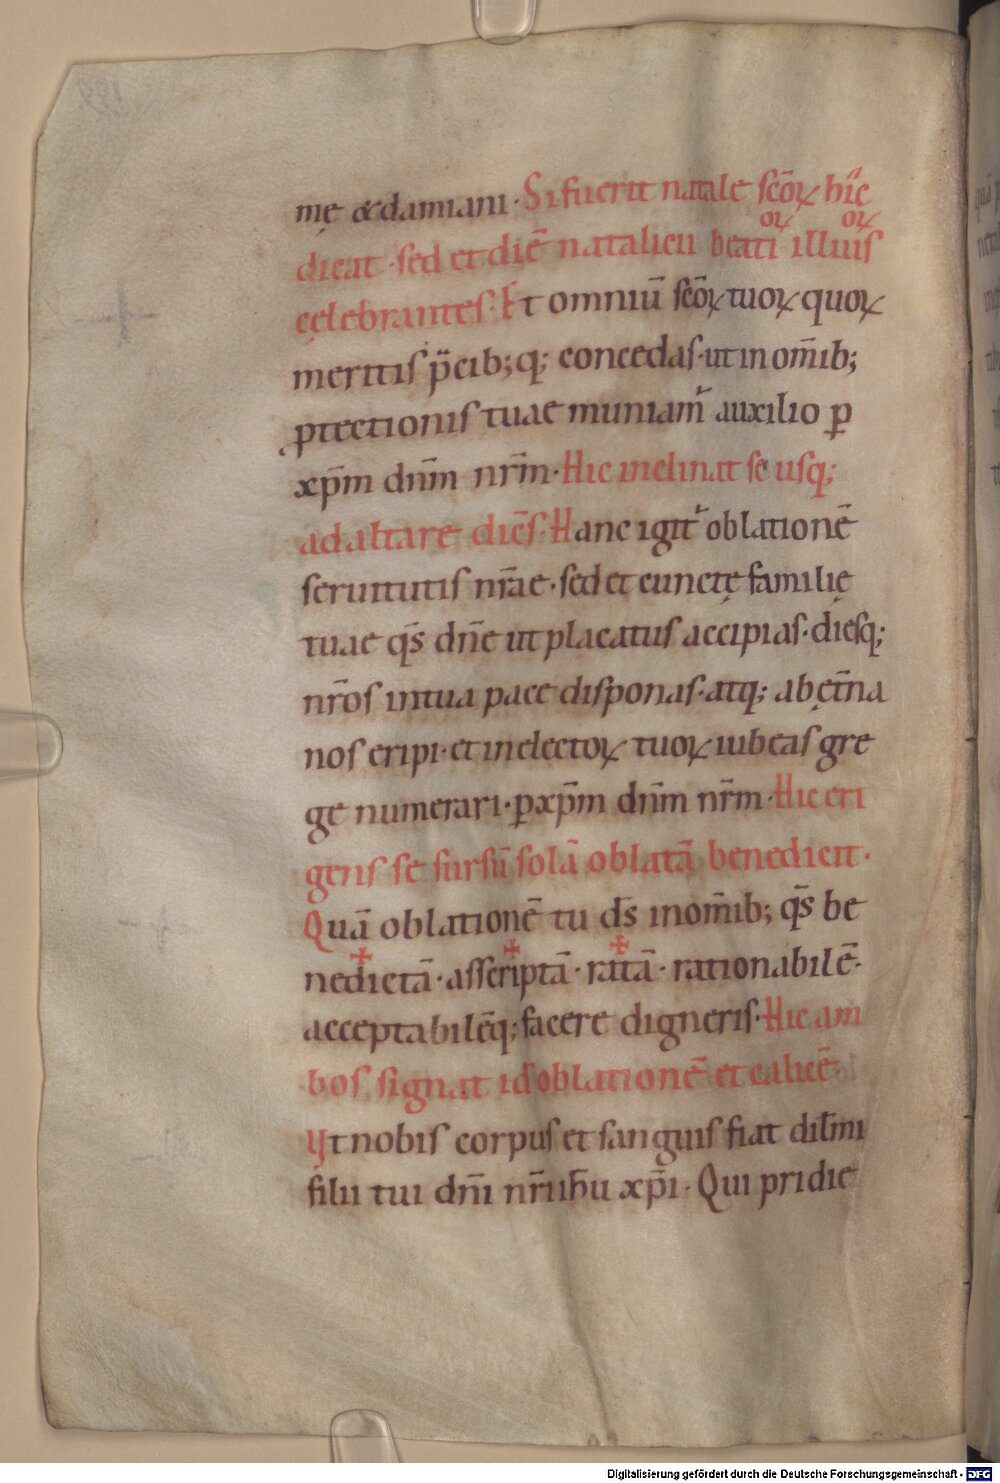 mę & damiani. Si fuerit natale scōꝝ hic
dicat. sed et diē natalicii beati oꝝ illius oꝝ
cęlebrantes. Et omniū scōꝝ tuoꝝ quoꝝ
meritis p̄cib; q; concedas. ut in om̄ib;
ptectionis tuae muniam̃ auxilio ꝑ
xp̄m dn̄m nr̄m. Hic inclinat se usq;
ad altare dicēs. Hanc igit̃ oblationē
seruitutis nr̄ae. sed et cunctę familię
tuae qs̄ dn̄e ut placatus accipias. diesq;
nr̄os in tua pace disponas. atq; ab ęt̄na
nos eripi. et in electoꝝ tuoꝝ iubeas gre
ge numerari. ꝑ xp̄m dn̄m nr̄m. Hic eri
gens se sursū solā oblatā benedicit.
Quā oblationē tu ds̄ in om̄ib; qs̄ be
ne✝dictā. as✝scriptā. ra✝tā. rationabilē.
acceptabilēq; facere digneris. Hic am
bos signat id̄ oblationē et calicē.
Ut nobis corpus et sanguis fiat dil̄mi
filii tui dn̄i nr̄i ih̄u xp̄i. Qui pridie
Digitalisierung gefördert durch die Deutsche Forschungsgemeinschaft - DFG